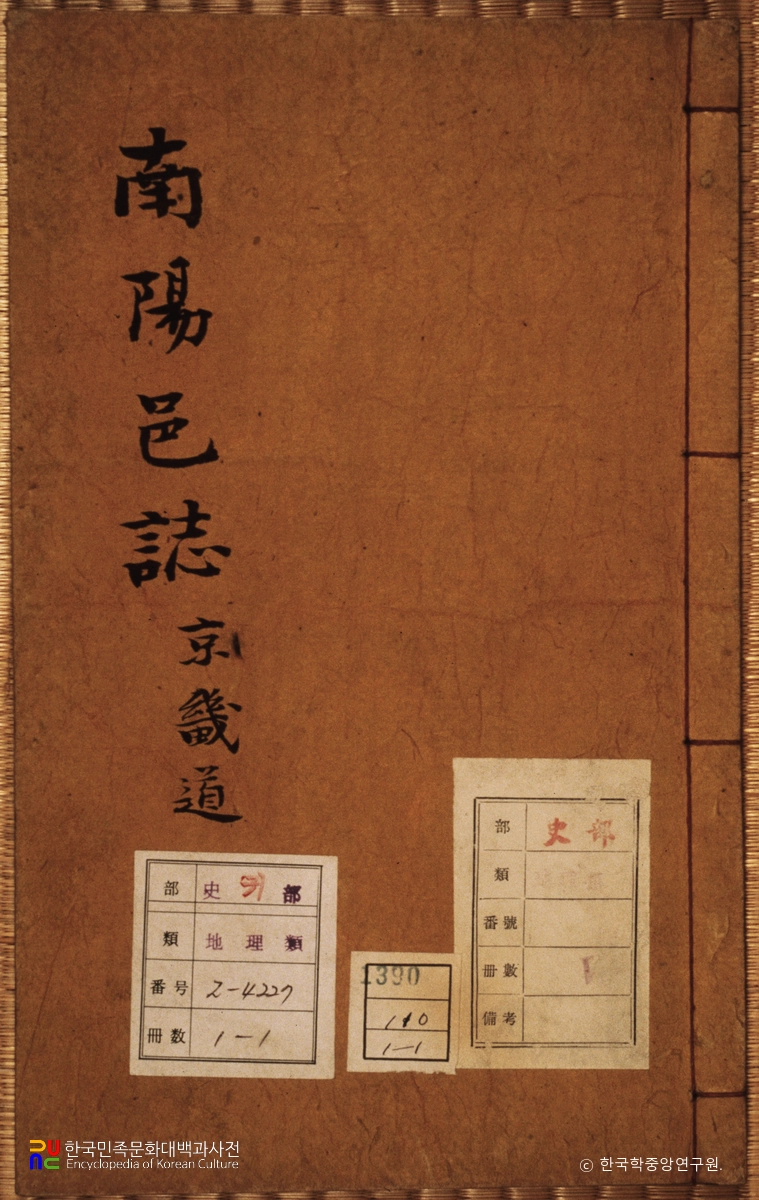 南陽邑誌
京畿道
部 史 部
類 地理類
番号 2-4227
冊数 1-1
1390
1-1
部 史部
類
番號
冊數
備考
한국민족문화대백과사전
Encyclopedia of Korean Culture
© 한국학중앙연구원.